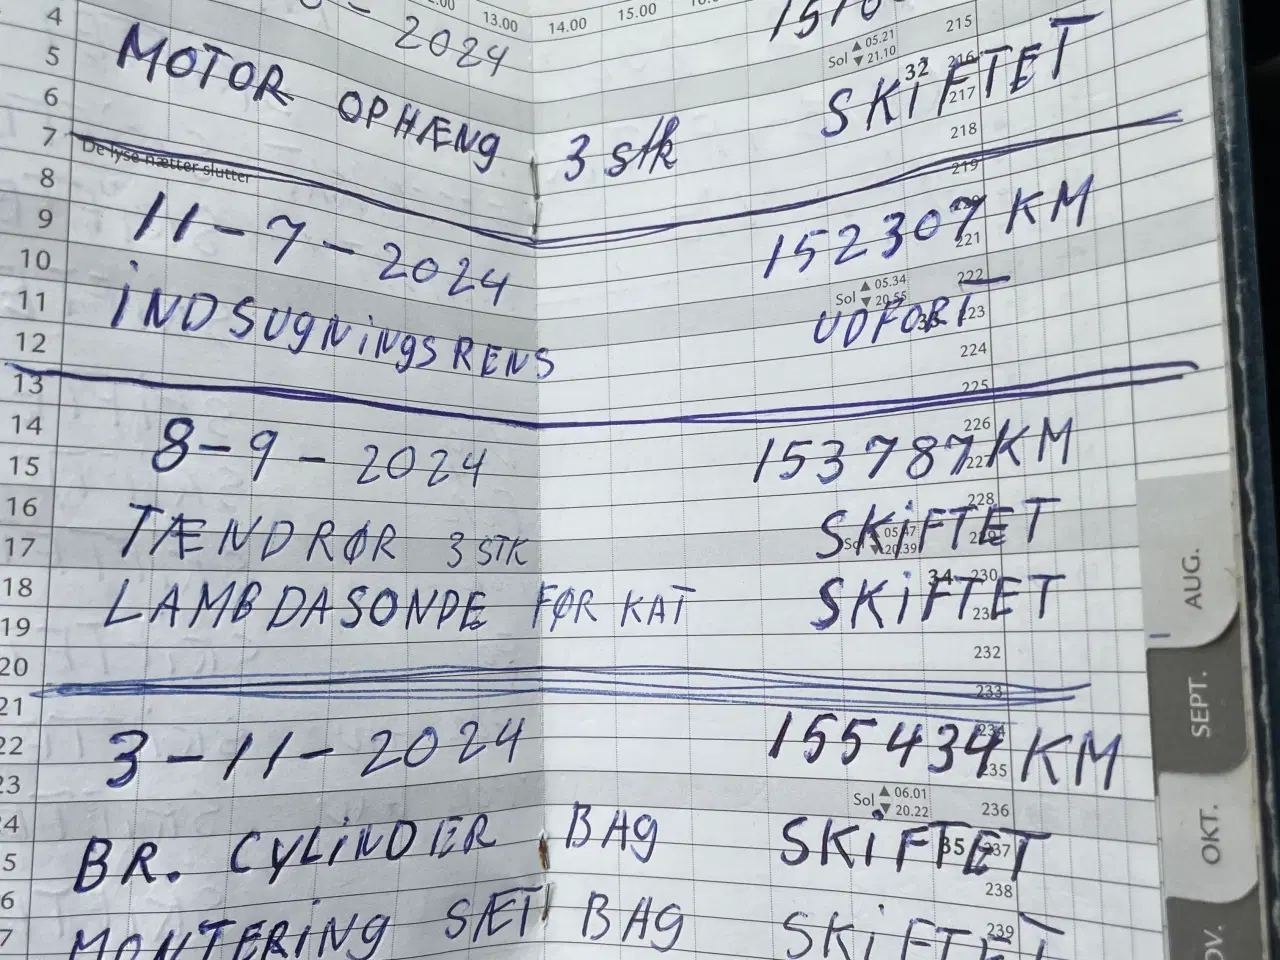 13.00 14.00 15.00
2024
4
215
Sol ▲ 05.21 ▼ 21.10
5
MOTOR OPHÆNG 3 stk SKiFTET
32 216
6
217
7
218
De lyse nætter slutter
8
219
9
11-7-2024 152307 KM
10
221
222
Sol ▲ 05.34 ▼ 20.55
11
iNDSUgNiNgSRENS UDFORT
12
224
13
225
14
226
15
8-9-2024 153787 KM
16
228
TÆNDRØR 3 STK SKiFTET
17
Sol ▲ 05.47 ▼ 20.39
18
34 230
LAMBDASONDE FØR KAT SKiFTET
19
AUG.
20
232
21
233
22
234
3-11-2024 155434 KM
235
23
SEPT.
Sol ▲ 06.01 ▼ 20.22
236
BR. CYLiNDER BAg SKiFTET
35 237
OKT.
238
MONTERiNg SÆT BAg SKiFTET
239